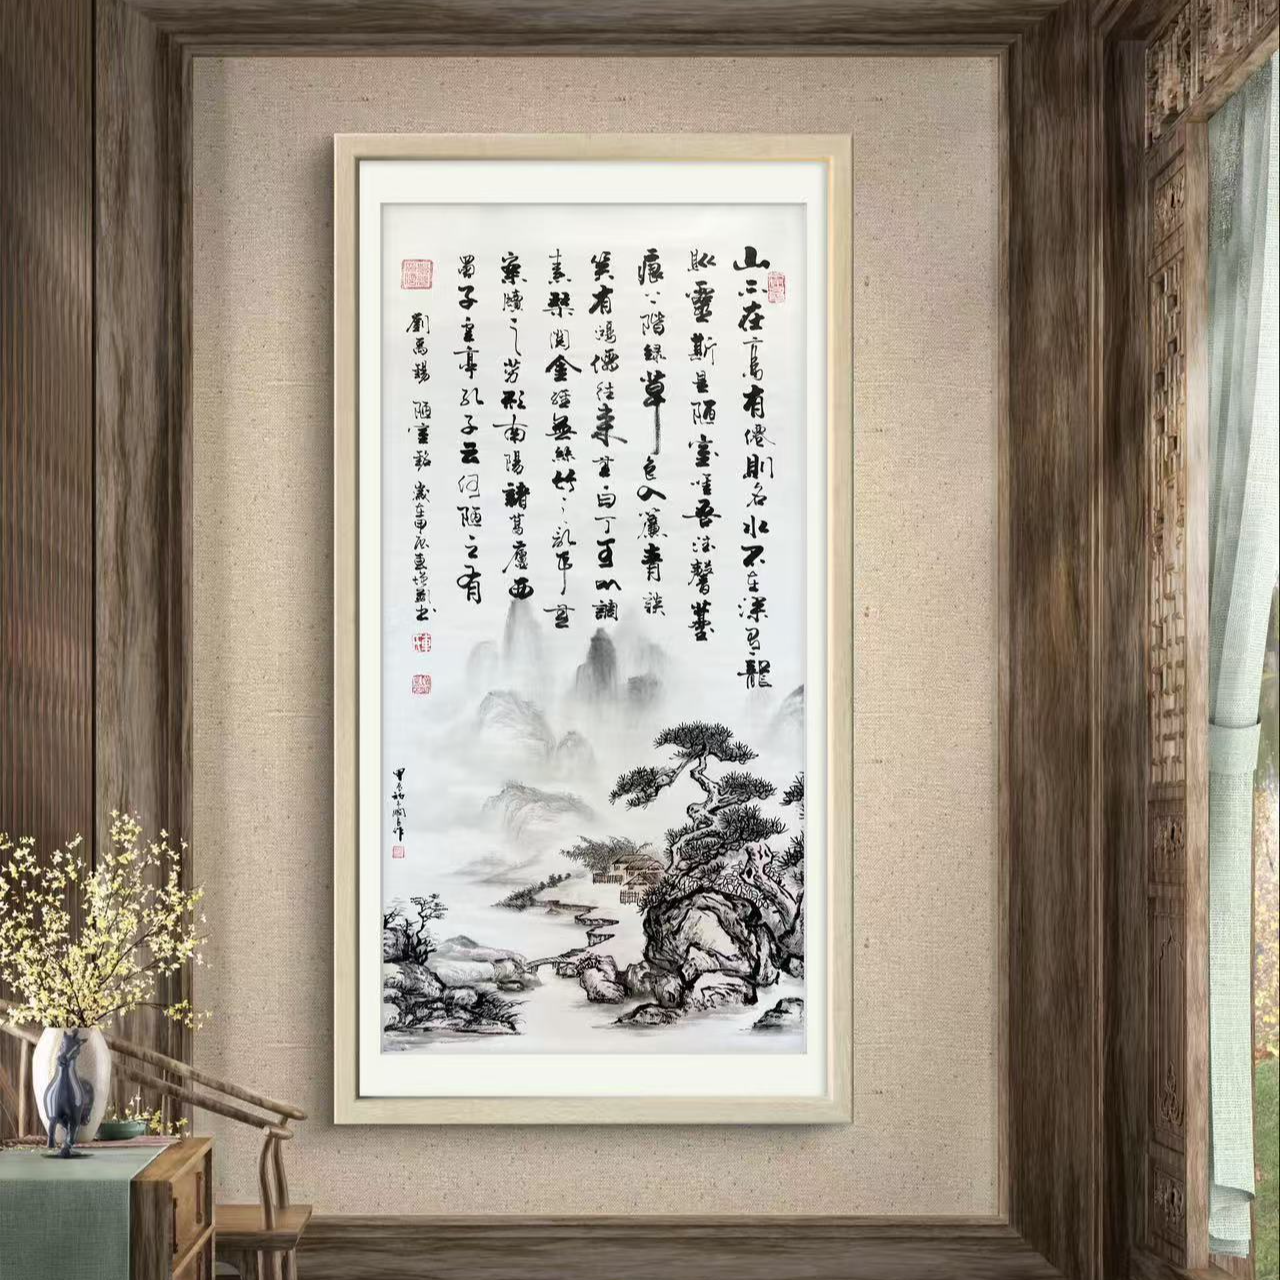 山不在高有僊則名水不在深有龍
則靈斯是陋室唯吾德馨
痕上階綠草色入簾青談
笑有鴻儒往来無白丁可以調
素琴閱金經無絲竹之亂耳無
案牘之勞形南陽諸葛廬西
蜀子雲亭孔子云何陋之有
劉禹錫 陋室銘 歲在甲辰 書
甲辰 作